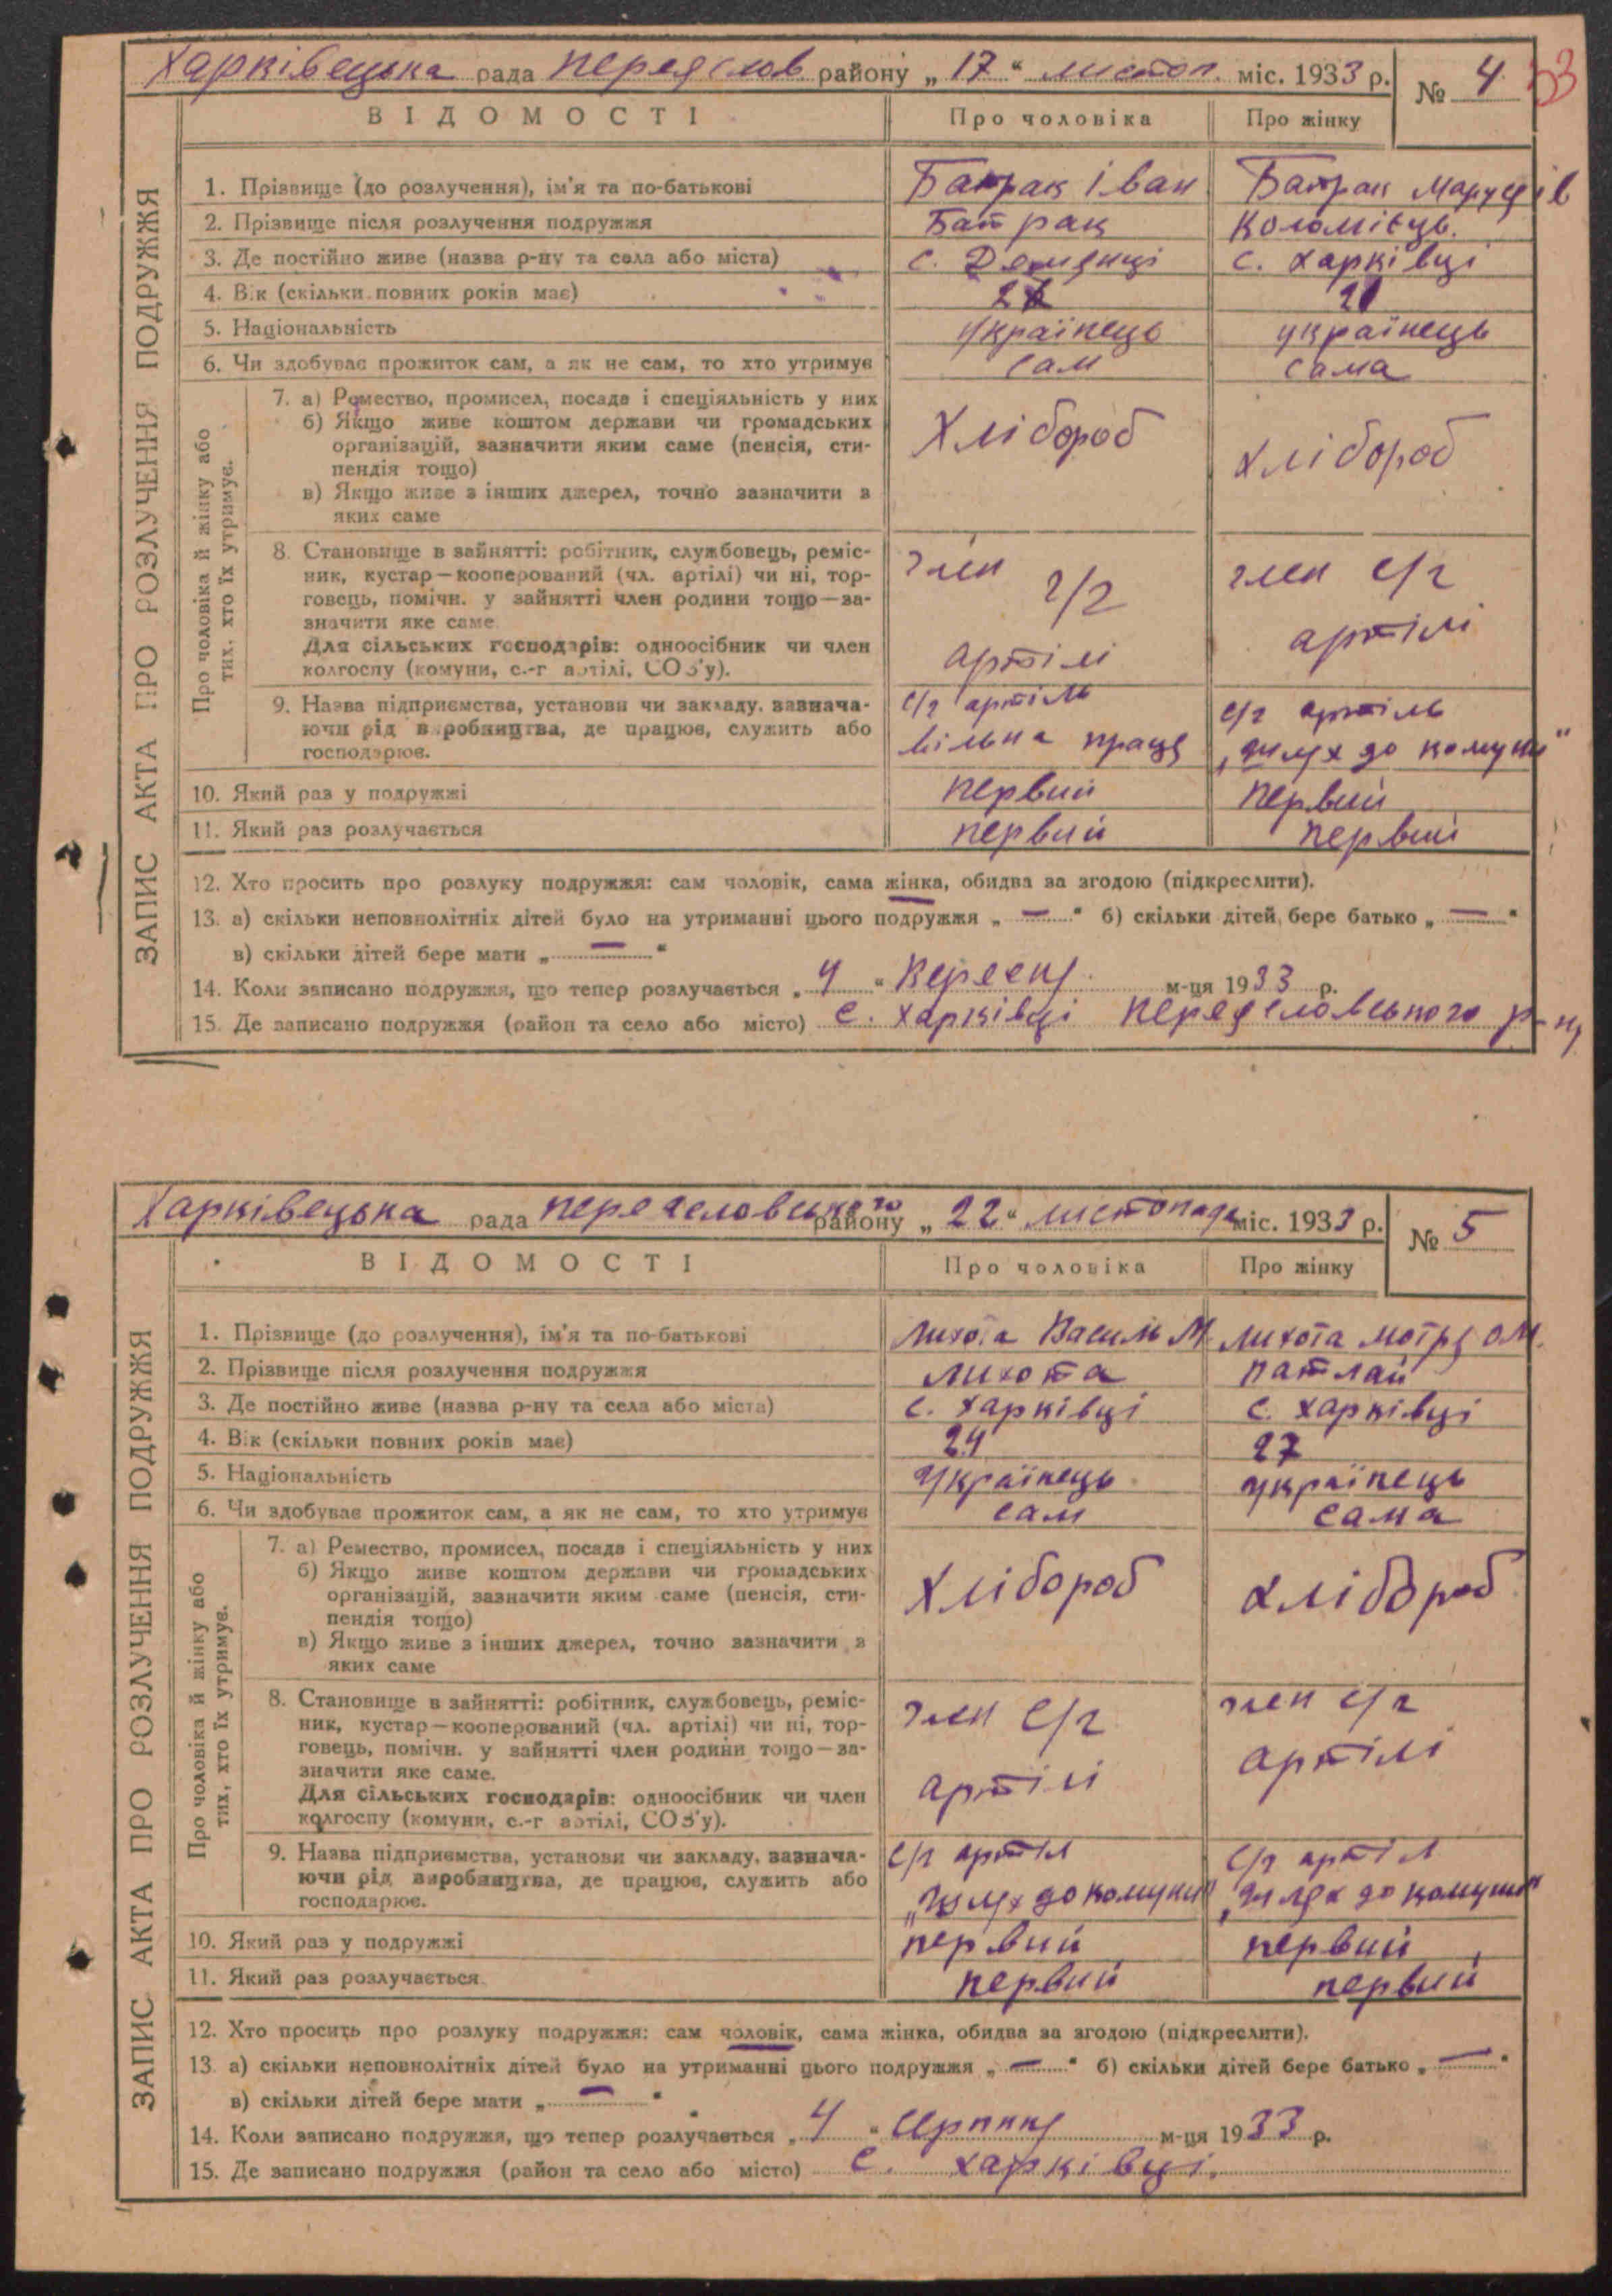 Харківецька рада Переяслов району „17“ листоп. міс. 1933 р. № 4 33
ЗАПИС АКТА ПРО РОЗЛУЧЕННЯ ПОДРУЖЖЯ
ВІДОМОСТІ Про чоловіка Про жінку
1. Прізвище (до розлучення), ім'я та по-батькові Батрак Іван Батрак Маруся
2. Прізвище після розлучення подружжя Батрак Коломієць.
3. Де постійно живе (назва р-ну та села або міста) с. Дем'янці с. Харківці
4. Вік (скільки повних років має) 21
5. Національність українець українець
6. Чи здобуває прожиток сам, а як не сам, то хто утримує сам сама
Про чоловіка й жінку або тих, хто їх утримує.
7. а) Ремество, промисел, посада і спеціяльність у них
б) Якщо живе коштом держави чи громадських
організацій, зазначити яким саме (пенсія, сти-
пендія тощо)
в) Якщо живе з інших джерел, точно зазначити з
яких саме
Хлібороб хлібороб
8. Становище в зайнятті: робітник, службовець, реміс-
ник, кустар—кооперований (чл. артілі) чи ні, тор-
говець, помічн. у зайнятті член родини тощо—за-
значити яке саме.
Для сільських господарів: одноосібник чи член
колгоспу (комуни, с.-г артілі, СОЗ'у).
член с/г артілі член с/г артілі
9. Назва підприємства, установи чи закладу, зазнача-
ючи рід виробництва, де працює, служить або
господарює.
с/г артіль вільна праця с/г артіль „шлях до комуни“
10. Який раз у подружжі первий первий
11. Який раз розлучається первий первий
12. Хто просить про розлуку подружжя: сам чоловік, сама жінка, обидва за згодою (підкреслити).
13. а) скільки неповнолітніх дітей було на утриманні цього подружжя „—“ б) скільки дітей бере батько „—“
в) скільки дітей бере мати „—“
14. Коли записано подружжя, що тепер розлучається „4“ Вересня м-ця 1933 р.
15. Де записано подружжя (район та село або місто) с. Харківці Переяславського р-ну
Харківецька рада Переяславського району „22“ листопада міс. 1933 р. № 5
ЗАПИС АКТА ПРО РОЗЛУЧЕННЯ ПОДРУЖЖЯ
ВІДОМОСТІ Про чоловіка Про жінку
1. Прізвище (до розлучення), ім'я та по-батькові Лихота Василь М Лихота Мотря О М.
2. Прізвище після розлучення подружжя Лихота Патлай
3. Де постійно живе (назва р-ну та села або міста) с. Харківці с. Харківці
4. Вік (скільки повних років має) 24 27
5. Національність українець українець
6. Чи здобуває прожиток сам, а як не сам, то хто утримує сам сама
Про чоловіка й жінку або тих, хто їх утримує.
7. а) Ремество, промисел, посада і спеціяльність у них
б) Якщо живе коштом держави чи громадських
організацій, зазначити яким саме (пенсія, сти-
пендія тощо)
в) Якщо живе з інших джерел, точно зазначити з
яких саме
Хлібороб хлібороб
8. Становище в зайнятті: робітник, службовець, реміс-
ник, кустар—кооперований (чл. артілі) чи ні, тор-
говець, помічн. у зайнятті член родини тощо—за-
значити яке саме.
Для сільських господарів: одноосібник чи член
колгоспу (комуни, с.-г артілі, СОЗ'у).
член с/г артілі член с/г артілі
9. Назва підприємства, установи чи закладу, зазнача-
ючи рід виробництва, де працює, служить або
господарює.
с/г артіл „шлях до комуни“ с/г артіл „шлях до комуни“
10. Який раз у подружжі первий первий
11. Який раз розлучається первий первий
12. Хто просить про розлуку подружжя: сам чоловік, сама жінка, обидва за згодою (підкреслити).
13. а) скільки неповнолітніх дітей було на утриманні цього подружжя „—“ б) скільки дітей бере батько „—“
в) скільки дітей бере мати „—“
14. Коли записано подружжя, що тепер розлучається „4“ Серпня м-ця 1933 р.
15. Де записано подружжя (район та село або місто) с. Харківці.